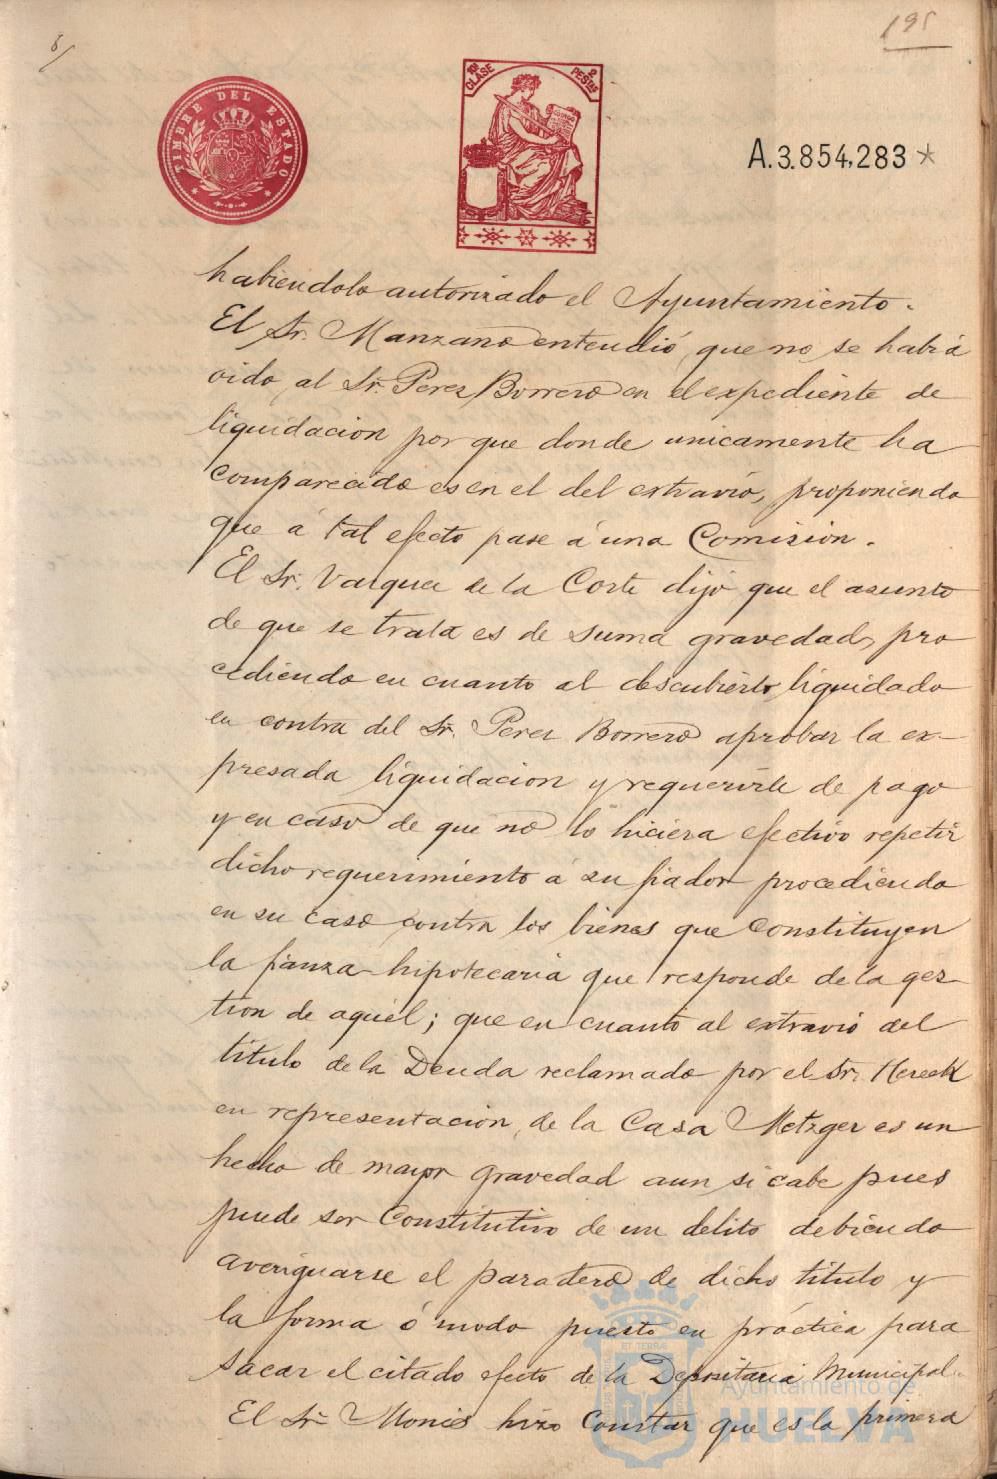 8/
195
TIMBRE DEL ESTADO
10ª CLASE
2 PESETAS
A.3.854,283*
habiendolo autorizado el Ayuntamiento.
El Sr. Manzano entendió, que no se habia
oido, al Sr. Perez Borrero en el expediente de
liquidacion por que donde unicamente ha
comparecido es en el del extravio, proponiendo
que á tal efecto pase á una Comision.
El Sr. Vazquez de la Corte dijo que el asunto
de que se trata es de suma gravedad, pro
cediendo en cuanto al descubierto, liquidado
en contra del Sr. Perez Borrero aprobar la ex-
presada liquidacion y requerirle de pago
y en caso de que no lo hiciera efectivo repetir
dicho requerimiento á su fiador procediendo
en su caso contra los bienes que constituyen
la fianza hipotecaria que responde de la ges-
tion de aquél; que en cuanto al extravio del
titulo de la Deuda reclamado por el Sr. Hereck
en representacion, de la Casa Metzger es un
hecho de mayor gravedad aun si cabe pues
puede ser constitutivo de un delito debiendo
averiguarse el paradero de dicho titulo y
la forma ó modo puesto en práctica para
sacar el citado efecto de la Depositaria Municipal.
El Sr. Monis hizo constar que es la primera
Ayuntamiento de
HUELVA